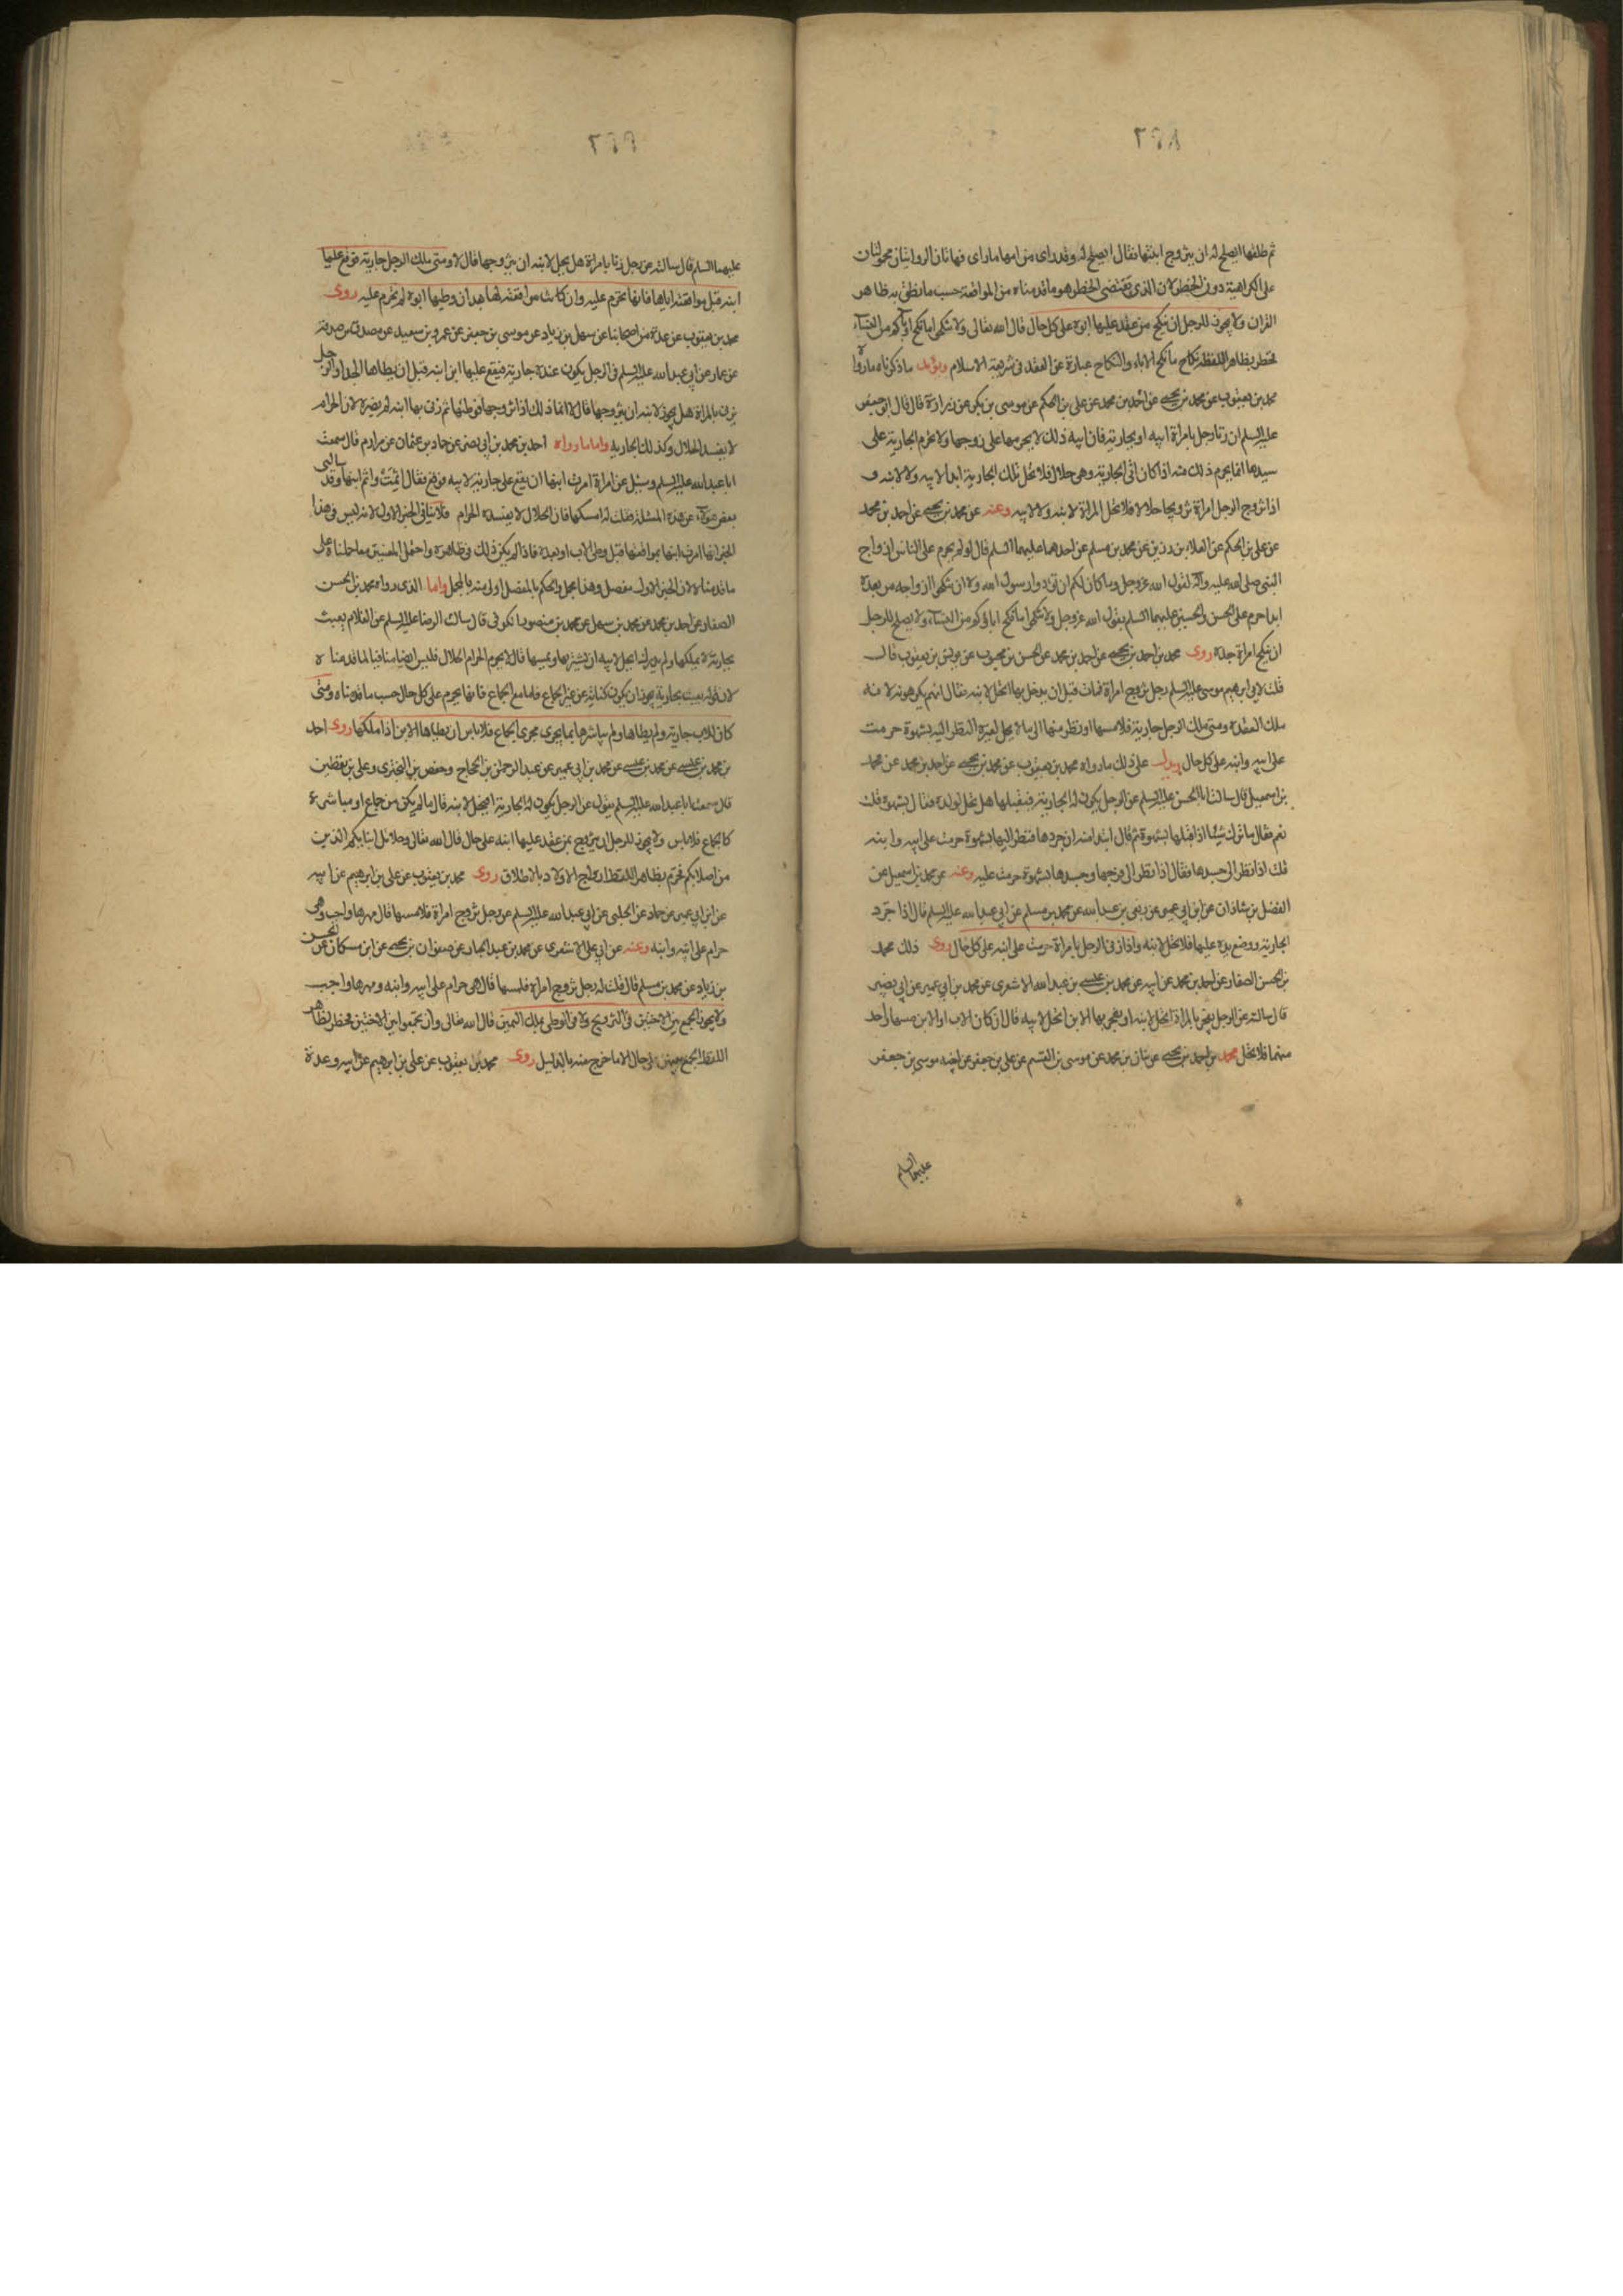 ٢٩٨
ثم طلقها ايصلح له ان يتزوج ابنتها فقال ايصلح له وقد راى من امها ما راى فهاتان الروايتان محمولتان
على الكراهية دون الحظر لان الذى يقتضى الحظر هو ما قدمناه من المواقعة حسب ما نطق به ظاهر
القران ولا يجوز للرجل ان ينكح من عقد عليها ابوه على كل حال قال الله تعالى ولا تنكحوا ما نكح اباؤكم من النساء
فحظر بظاهر اللفظ نكاح ما نكح الاباء والنكاح عبارة عن العقد فى شريعة الاسلام ويؤيد ما ذكرناه ما رواه
محمد بن يعقوب عن محمد بن يحيى عن احمد بن محمد عن على بن الحكم عن موسى بن بكر عن زرارة قال قال ابو جعفر
عليه السلم ان زنا رجل بامراة ابيه او بجارية ابيه فان ذلك لا يحرمها على زوجها ولا تحرم الجارية على
سيدها انما يحرم ذلك منه اذا كان اتى الجارية وهى حلال فلا تحل تلك الجارية ابدا لابيه ولا لابنه و
اذا تزوج الرجل امراة تزويجا حلالا فلا تحل المراة لابنه ولا لابيه وعنه عن محمد بن يحيى عن احمد بن محمد
عن على بن الحكم عن العلاء بن رزين عن محمد بن مسلم عن احدهما عليهما السلم قال لو لم يحرم على الناس ازواج
النبى صلى الله عليه واله لقول الله عز وجل وما كان لكم ان تؤذوا رسول الله ولا ان تنكحوا ازواجه من بعده
ابدا حرم على الحسن والحسين عليهما السلم بقول الله عز وجل ولا تنكحوا ما نكح اباؤكم من النساء ولا يصلح للرجل
ان ينكح امراة جده روى محمد بن احمد بن يحيى عن احمد بن محمد عن الحسن بن محبوب عن يونس بن يعقوب قال
قلت لابى ابرهيم موسى عليه السلم رجل تزوج امراة فمات قبل ان يدخل بها اتحل لابنه فقال انهم يكرهونه لانه
ملك العقدة ومتى ملك الرجل جارية فلامسها او نظر منها الى ما لا يحل لغيره النظر اليه بشهوة حرمت
على ابيه وابنه على كل حال يدل على ذلك ما رواه محمد بن يعقوب عن محمد بن يحيى عن احمد بن محمد عن محمد
بن اسمعيل قال سالت ابا الحسن عليه السلم عن الرجل يكون له الجارية فيقبلها هل تحل لولده فقال بشهوة قلت
نعم فقال ما ترك شيئا اذا قبلها بشهوة ثم قال ابتدا منه ان جردها فنظر اليها بشهوة حرمت على ابيه وابنه
قلت اذا نظر الى جسدها فقال اذا نظر الى فرجها وجسدها بشهوة حرمت عليه وعنه عن محمد بن اسمعيل عن
الفضل بن شاذان عن ابن ابى عمير عن ربعى بن عبد الله عن محمد بن مسلم عن ابى عبد الله عليه السلم قال اذا جرد
الجارية ووضع يده عليها فلا تحل لابنه واذا زنى الرجل بامراة حرمت على ابنه على كل حال روى ذلك محمد
بن الحسن الصفار عن احمد بن محمد عن ابيه عن محمد بن عيسى بن عبد الله الاشعرى عن محمد بن ابى عمير عن ابى بصير
قال سالته عن الرجل يفجر بالمراة اتحل لابنه او يفجر بها الابن اتحل لابيه قال ان كان الاب او الابن مسها واحد
منهما فلا تحل محمد بن احمد بن يحيى عن بنان بن محمد عن موسى بن القسم عن على بن جعفر عن اخيه موسى بن جعفر
عليهما السلم
٢٩٩
عليهما السلم قال سالته عن رجل زنا بامراة هل يحل لابنه ان يتزوجها قال لا ومتى ملك الرجل جارية فوقع عليها
ابنه قبل مواقعته اياها فانها تحرم عليه وان كانت مواقعته لها بعد ان وطيها ابوه لم تحرم عليه روى
محمد بن يعقوب عن عدة من اصحابنا عن سهل بن زياد عن موسى بن جعفر عن عمرو بن سعيد عن مصدق بن صدقة
عن عمار عن ابى عبد الله عليه السلم فى الرجل يكون عنده جارية فيقع عليها ابن ابنه قبل ان يطاها الجد او الرجل
يزنى بالمراة هل يجوز لابنه ان يتزوجها قال لا انما ذلك اذا تزوجها فوطئها ثم زنى بها ابنه لم يضره لان الحرام
لا يفسد الحلال وكذلك الجارية واما ما رواه احمد بن محمد بن ابى نصر عن حماد بن عثمان عن مرازم قال سمعت
ابا عبد الله عليه السلم وسئل عن امراة امرت ابنها ان يقع على جارية لابيه فوقع فقال اثمت واثم ابنها وقد سالنى
بعض هؤلاء عن هذه المسئلة فقلت له امسكها فان الحلال لا يفسده الحرام فلا ينافى الخبر الاول لانه ليس فى هذا
الخبر انها امرت ابنها بمواقعتها قبل وطى الاب او بعده فاذا لم يكن ذلك فى ظاهره واحتمل المعنيين معا حملناه على
ما قدمناه لان الخبر الاول مفصل وهذا مجمل والحكم بالمفصل اولى منه بالمجمل واما الذى رواه محمد بن الحسن
الصفار عن احمد بن محمد عن محمد بن سهل عن محمد بن منصور الكوفى قال سالت الرضا عليه السلم عن الغلام يعبث
بجارية لا يملكها ولم يدرك ايحل لابيه ان يشتريها ويمسها قال لا يحرم الحرام الحلال فليس ايضا منافيا لما قدمناه
لان قوله يعبث بجارية يجوز ان يكون كناية عن غير الجماع فاما مع الجماع فانها تحرم على كل حال حسب ما قدمناه ومتى
كان للاب جارية ولم يطاها ولم يباشرها بما يجرى مجرى الجماع فلا باس ان يطاها الابن اذا ملكها روى احمد
بن محمد بن عيسى عن محمد بن عيسى عن محمد بن ابى عمير عن عبد الرحمن بن الحجاج وحفص بن البخترى وعلى بن يقطين
قال سمعنا ابا عبد الله عليه السلم يقول عن الرجل يكون له الجارية افتحل لابنه قال ما لم يكن من جماع او مباشرة
كالجماع فلا باس ولا يجوز للرجل ان يتزوج بمن عقد عليها ابنه على حال قال الله تعالى وحلائل ابنائكم الذين
من اصلابكم فحرم بظاهر اللفظ ازواج الاولاد بالاطلاق روى محمد بن يعقوب عن على بن ابرهيم عن ابيه
عن ابن ابى عمير عن حماد عن الحلبى عن ابى عبد الله عليه السلم عن رجل تزوج امراة فلامسها قال مهرها واجب وهى
حرام على ابيه وابنه وعنه عن ابى على الاشعرى عن محمد بن عبد الجبار عن صفوان بن يحيى عن ابن مسكان عن الحسن
بن زياد عن محمد بن مسلم قال قلت له رجل تزوج امراة فلمسها قال هى حرام على ابيه وابنه ومهرها واجب
ولا يجوز الجمع بين الاختين فى التزويج ولا فى الوطى بملك اليمين قال الله تعالى وان تجمعوا بين الاختين فحظر بظاهر
اللفظ الجمع بينهن على حال الا ما خرج منه بالدليل روى محمد بن يعقوب عن على بن ابرهيم عن ابيه وعدة